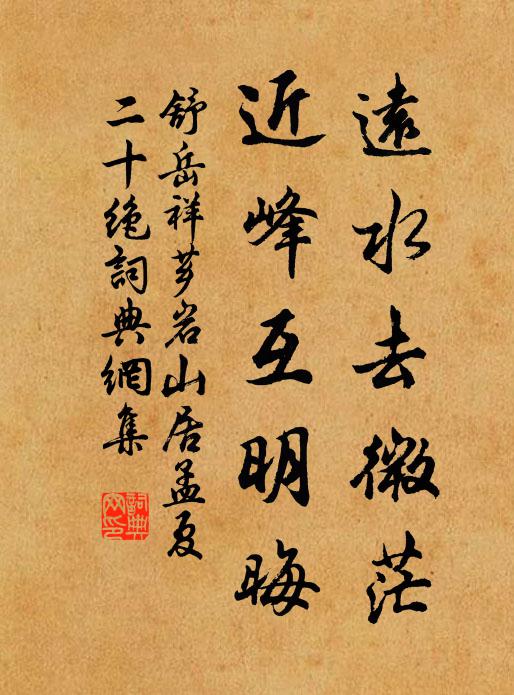 遠水去微茫
近峰互明晦
舒岳祥夢岩山居孟夏
二十絶詞典網集
詞典網印